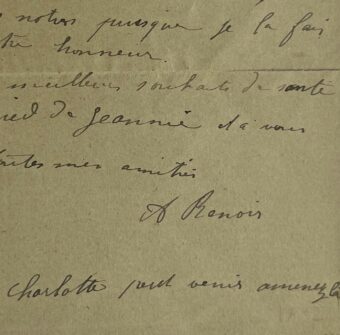 notres puisque je la fais
tre honneur.
meilleurs souhaits de sante
ied de Jeannie et à vous
toutes mes amitiés
A Renoir
Charlotte peut venir amenez la